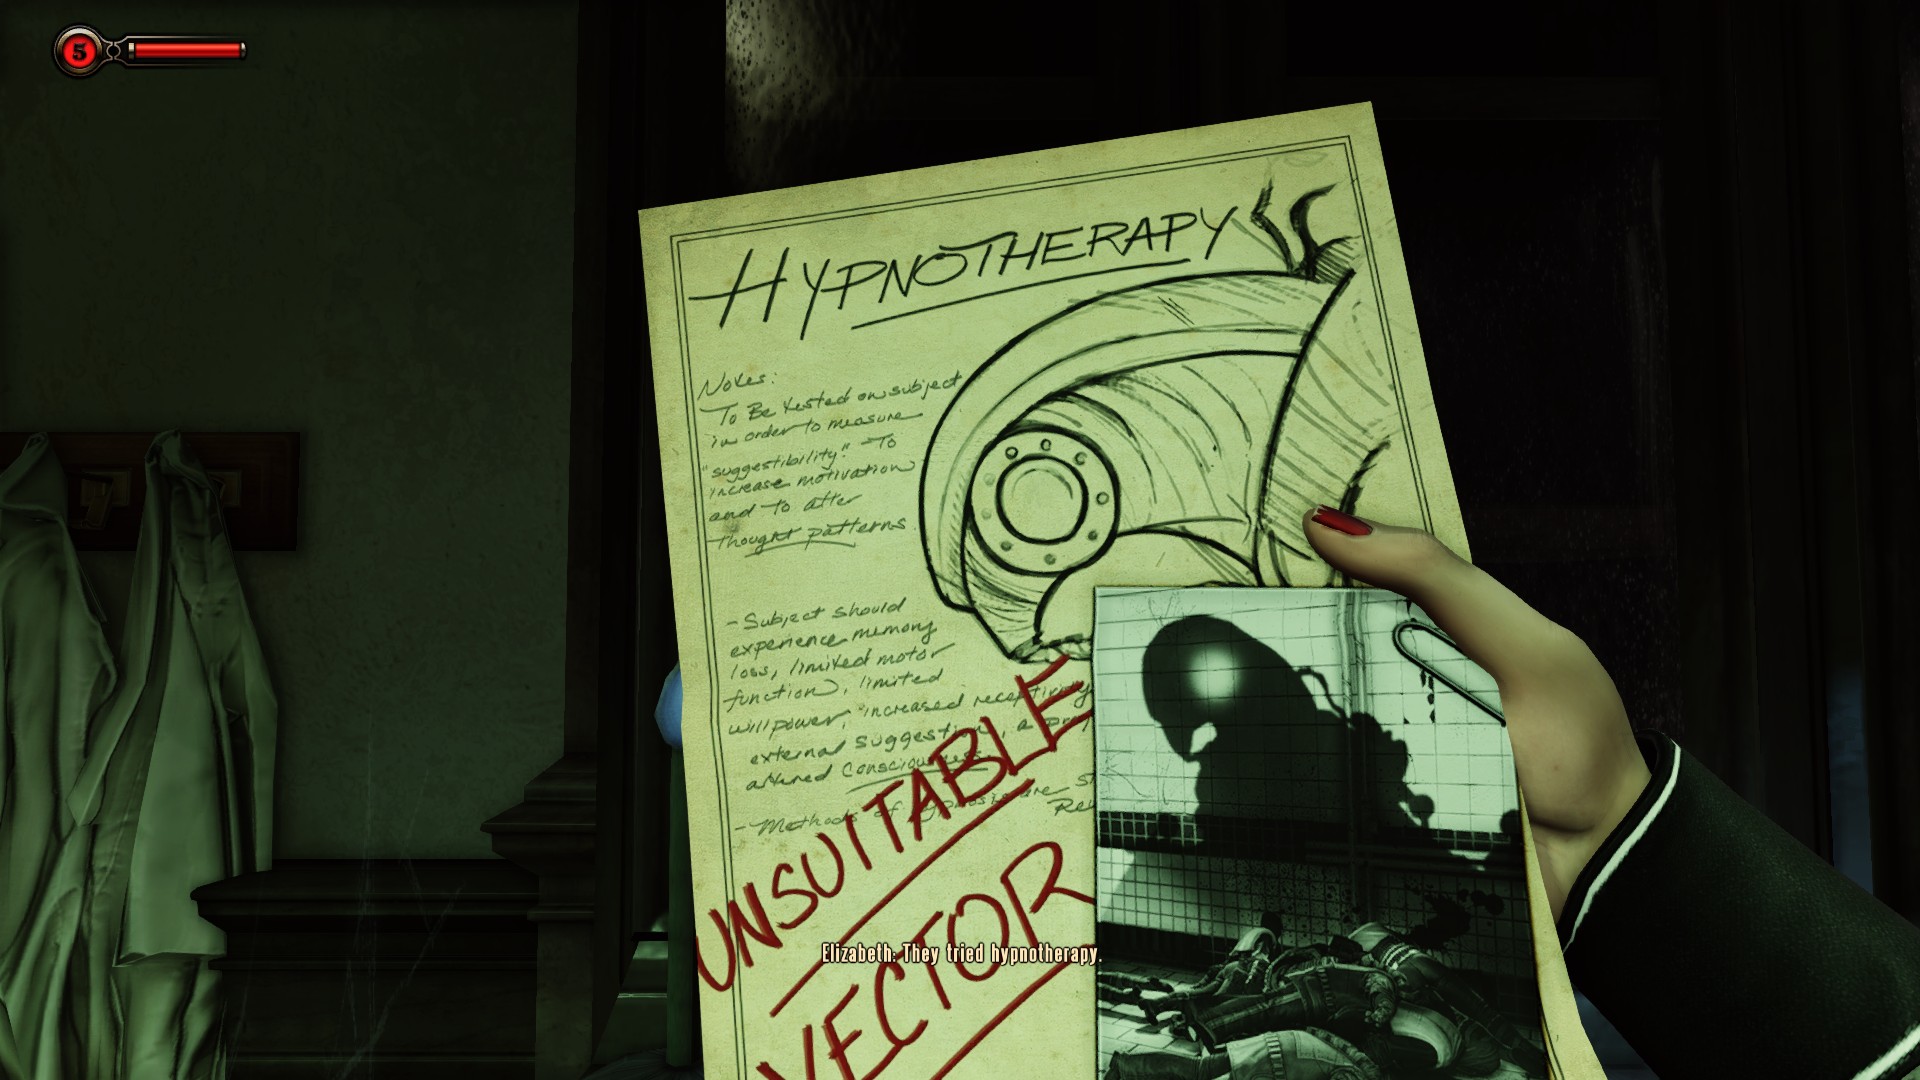 5
HYPNOTHERAPY
Notes:
To Be tested on subject
in order to measure
"suggestibility." To
increase motivation
and to alter
thought patterns
- Subject should
experience memory
loss, limited motor
function, limited
willpower, increased receptivity
external suggestion, a
altered consciousness
- Methods of hypnosis are
UNSUITABLE
VECTOR
Elizabeth: They tried hypnotherapy.